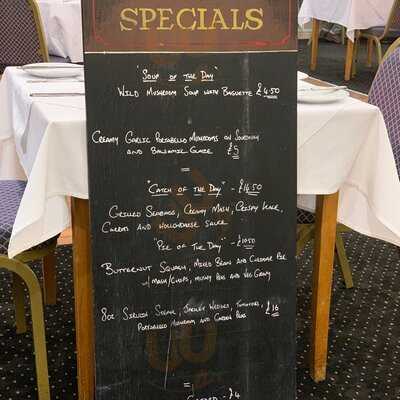 SPECIALS
"Soup of the Day"
Wild Mushroom Soup with Baguette £4.50
Creamy Garlic Portabello Mushrooms on Sourdough
and Balsamic Glaze £5
=
"Catch of the Day" - £16.50
Grilled Seabass, Creamy Mash, Crispy Kale,
Carrots and Hollandaise Sauce
"Pie of the Day" - £10.50
Butternut Squash, Mixed Bean and Cheddar Pie
w/ Mash/Chips, Mushy Peas and Veg Gravy
8oz Sirloin Steak, Wedges, Tomatoes, £16
Portabello Mushroom and Garden Peas
=
- £4